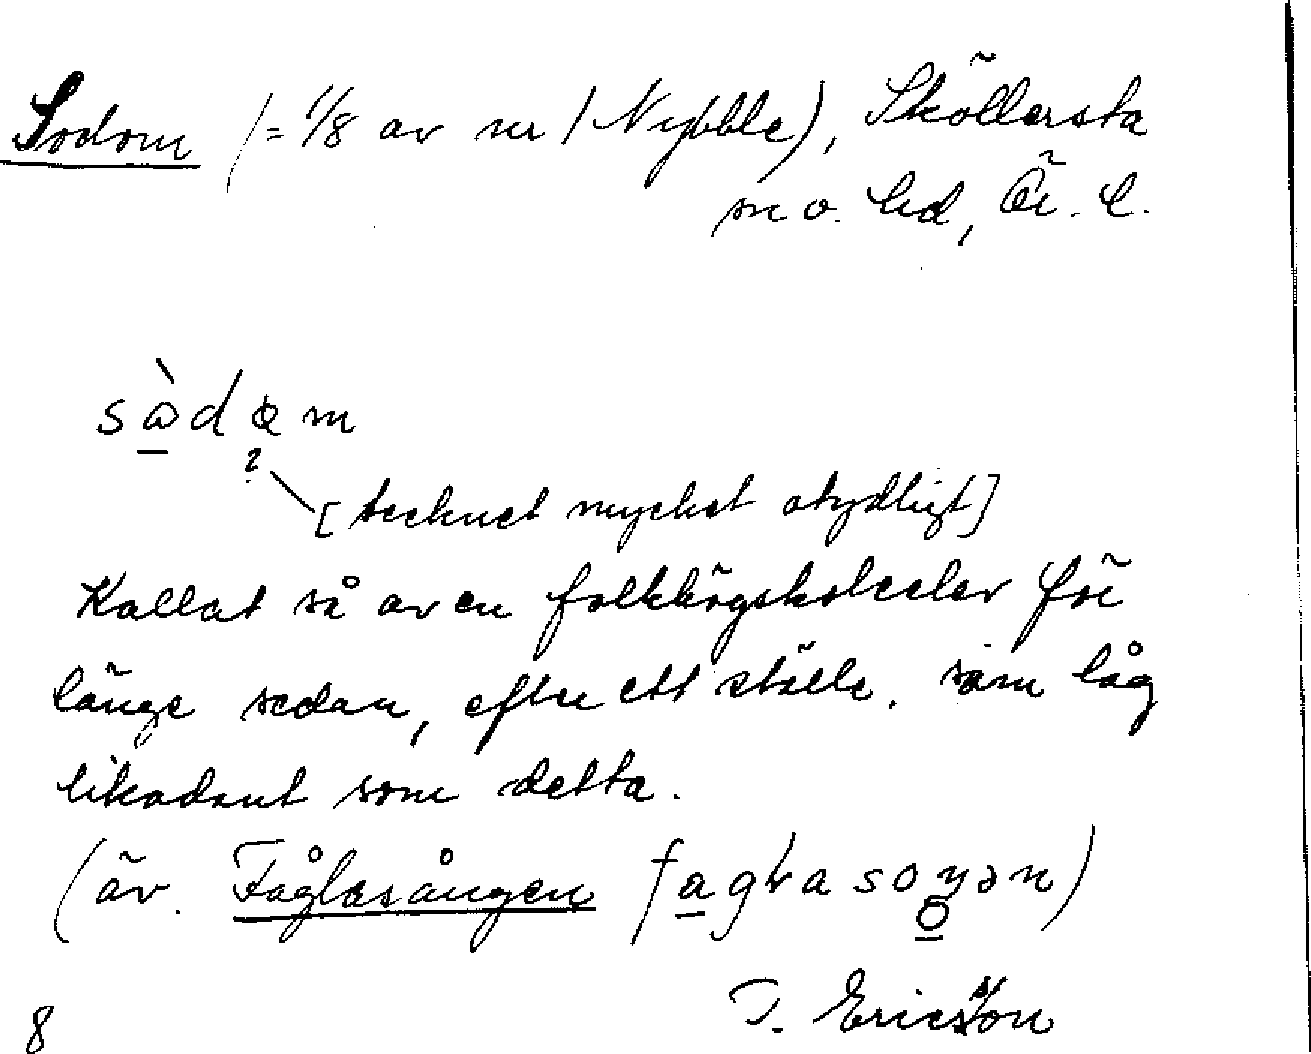 Sodom (= 1/8 av nr 1 Nybble), Sköllersta
sn o. hd, Ör. l.
sàdɵm
?
[tecknet mycket otydligt]
Kallat så av en folkhögskoleelev för
länge sedan, efter ett ställe, som låg
likadant som detta.
(äv. Fåglasången
T. Ericsson
8